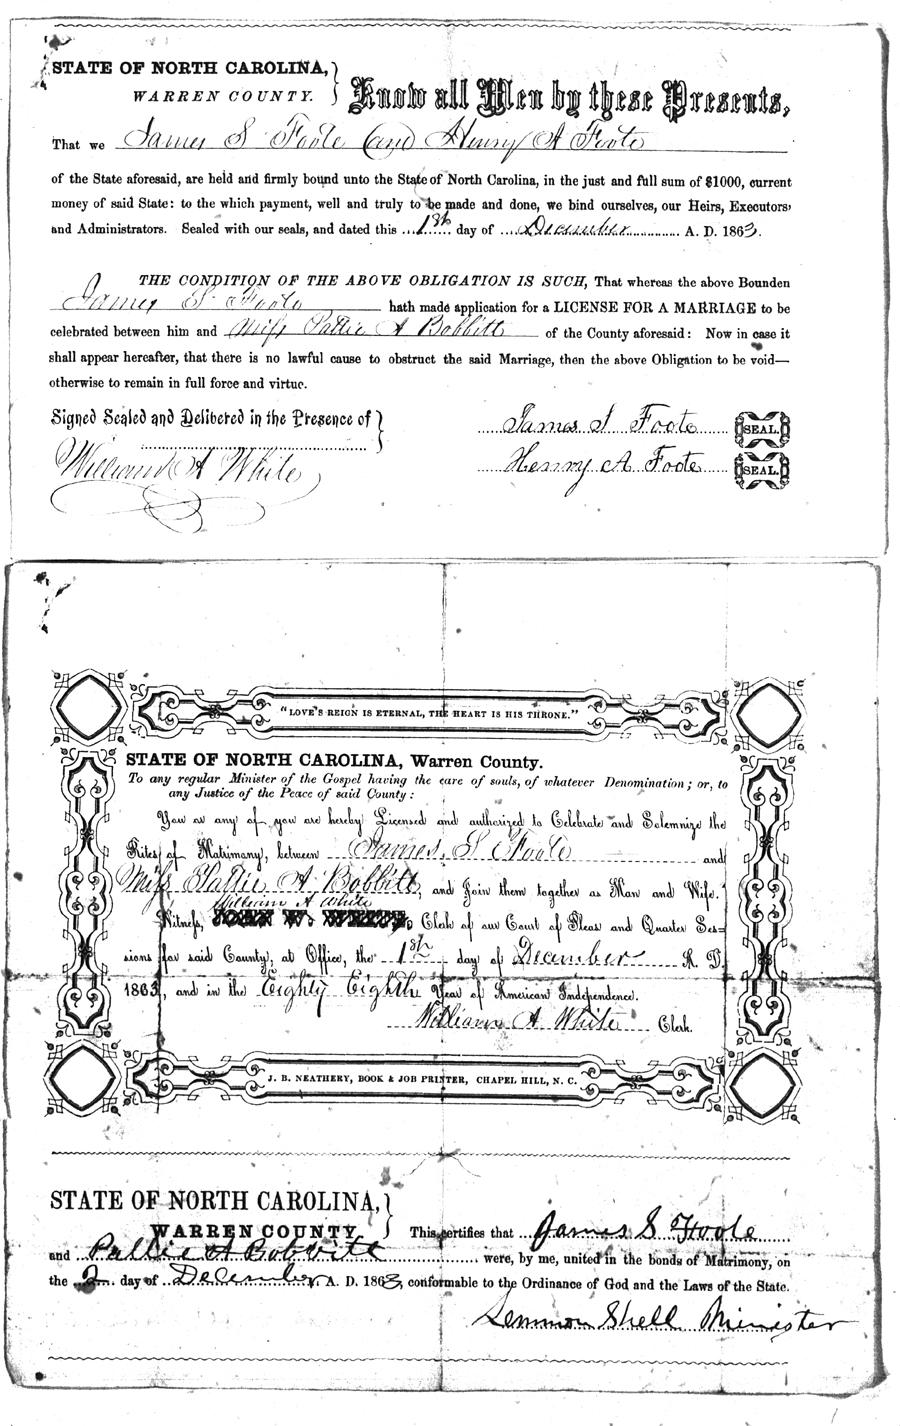 STATE OF NORTH CAROLINA,
WARREN COUNTY.
Know all Men by these Presents,
That we James S Foote and Henry A Foote
of the State aforesaid, are held and firmly bound unto the State of North Carolina, in the just and full sum of $1000, current
money of said State: to the which payment, well and truly to be made and done, we bind ourselves, our Heirs, Executors,
and Administrators. Sealed with our seals, and dated this 1st day of December A. D. 1863.
THE CONDITION OF THE ABOVE OBLIGATION IS SUCH, That whereas the above Bounden
James S. Foote hath made application for a LICENSE FOR A MARRIAGE to be
celebrated between him and Miss Pattie A Bobbitt of the County aforesaid: Now in case it
shall appear hereafter, that there is no lawful cause to obstruct the said Marriage, then the above Obligation to be void—
otherwise to remain in full force and virtue.
Signed Sealed and Delivered in the Presence of
James S Foote SEAL.
William A White
Henry A Foote SEAL.
"LOVE'S REIGN IS ETERNAL, THE HEART IS HIS THRONE."
STATE OF NORTH CAROLINA, Warren County.
To any regular Minister of the Gospel having the care of souls, of whatever Denomination; or, to
any Justice of the Peace of said County:
You or any of you are hereby Licensed and authorized to Celebrate and Solemnize the
Rites of Matrimony, between James. S Foote and
Miss Pattie A Bobbitt, and Join them together as Man and Wife.
William A White
Witness, JOHN W. WHITE, Clerk of our Court of Pleas and Quarter Ses=
sions for said County, at Office, the 1st day of December A. D.
1863, and in the Eighty Eighth Year of American Independence.
William A White Clerk.
J. B. NEATHERY, BOOK & JOB PRINTER, CHAPEL HILL, N. C.
STATE OF NORTH CAROLINA,
WARREN COUNTY
This certifies that James S Foote
and Pattie A Bobbitt were, by me, united in the bonds of Matrimony, on
the 2 day of December A. D. 1863, conformable to the Ordinance of God and the Laws of the State.
Lemmon Shell Minister